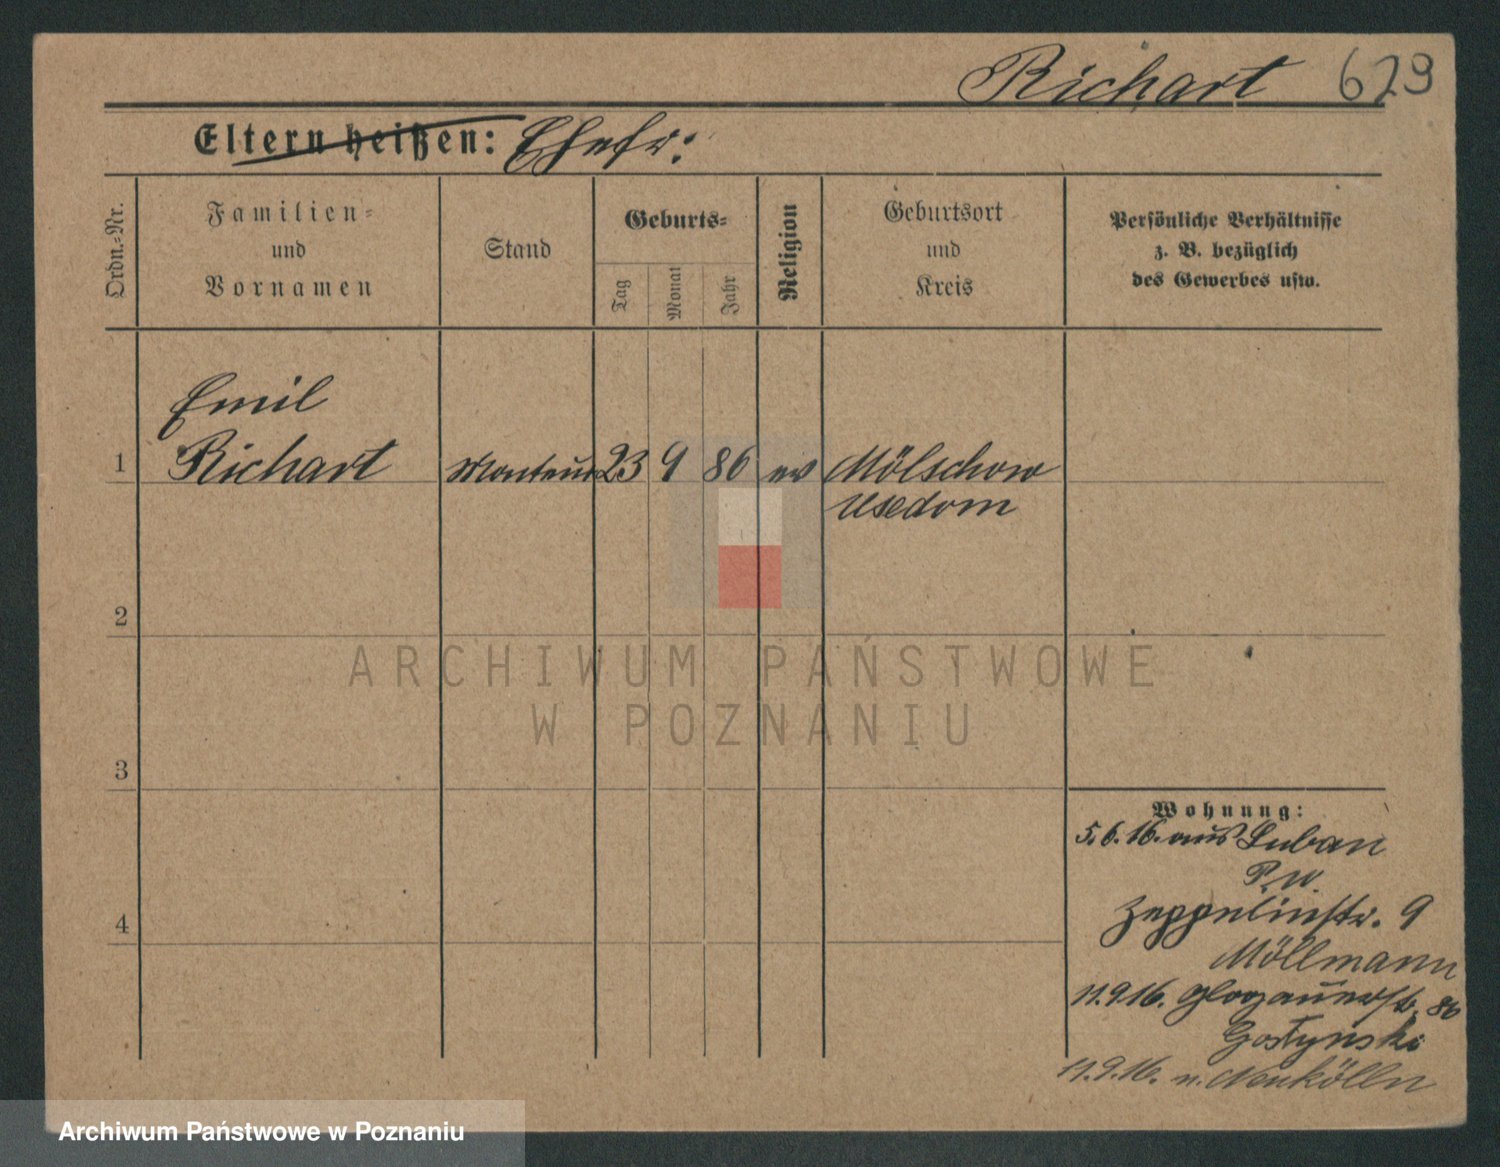 Richart 629
Eltern heißen: Ehefr:
Ordn.-Nr.
Familien-
und
Vornamen
Stand
Geburts-
Tag
Monat
Jahr
Religion
Geburtsort
und
Kreis
Persönliche Verhältnisse
z. B. bezüglich
des Gewerbes usw.
Emil
1 Richart Monteur 23 9 86 ev Mölschow
Usedom
2
3
4
Wohnung:
5.6.16. aus Luban
P.W.
Zeppelinstr. 9
Möllmann
11.9.16. Glogauerstr. 86
Gostynski
11.9.16. n. Neukölln
ARCHIWUM PAŃSTWOWE
W POZNANIU
Archiwum Państwowe w Poznaniu